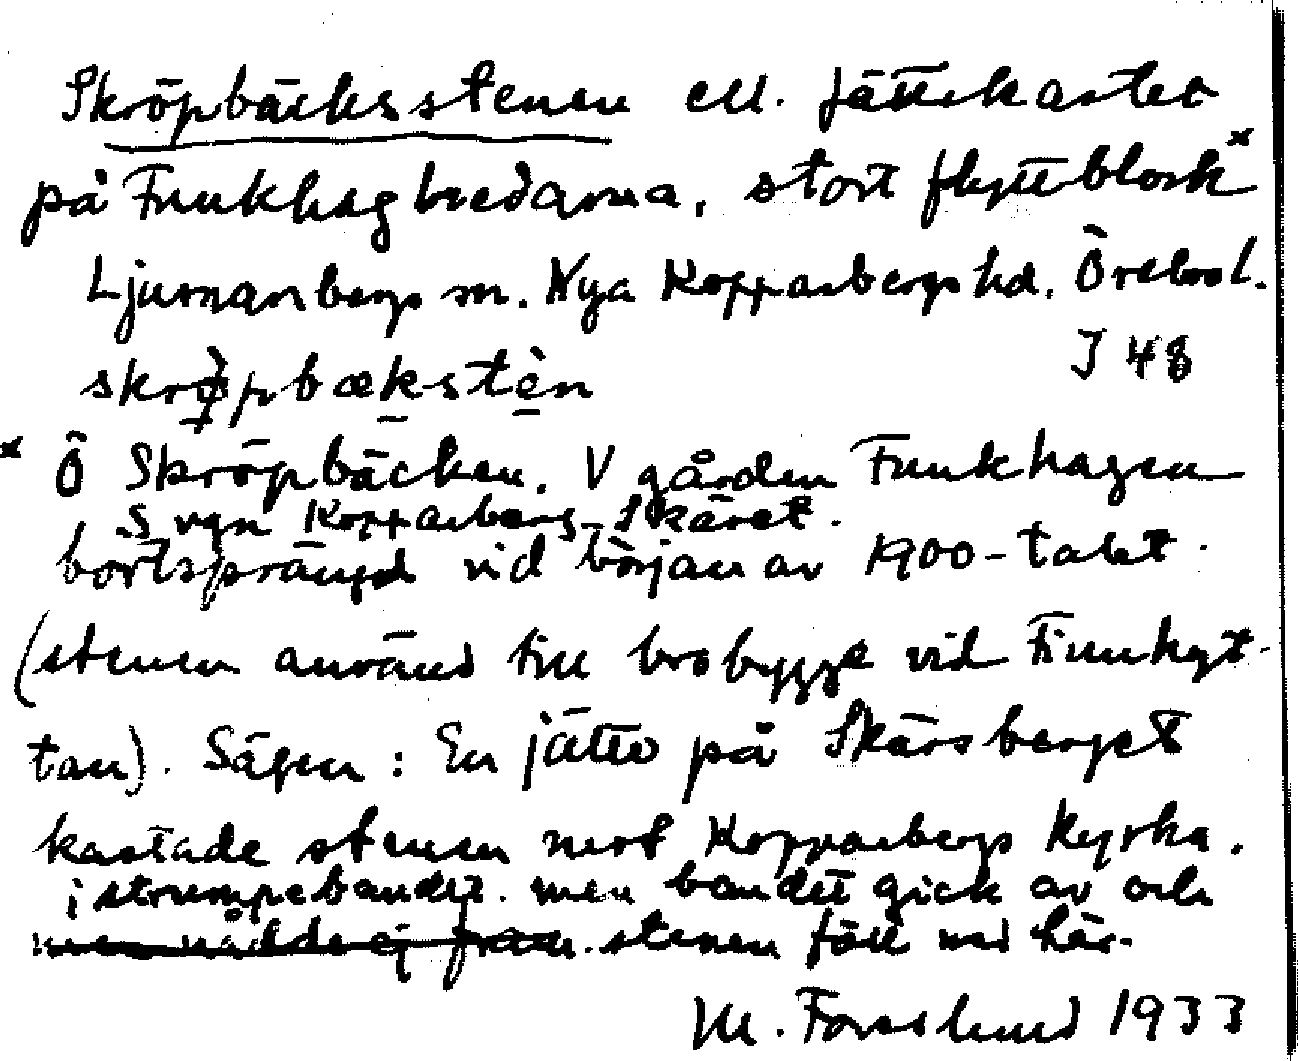 Skröpbäcksstenen ell. Jättekastet
på Funkhagbredarna, stort flyttblock*
Ljusnarsbergs sn. Nya Kopparbergs hd. Örebro l.
skrø̀pbækstèn J 48
* Ö Skröpbäcken, V gården Funkhagen
S vgn Kopparberg–Skäret.
bortsprängd vid början av 1900-talet.
(stenen använd till brobygge vid Finnhyt-
tan). Sägen: En jätte på Skärsberget
kastade stenen mot Kopparbergs kyrka.
i strumpebandet. men bandet gick av och
men nådde ej fram. stenen föll ned här.
M. Forslund 1933